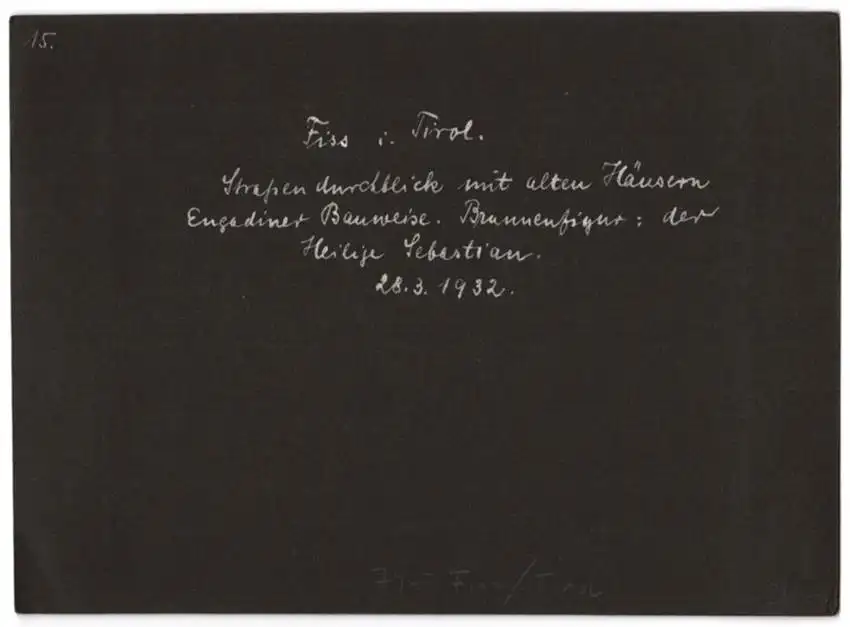 15.
Fiss i. Tirol.
Straßendurchblick mit alten Häusern
Engadiner Bauweise. Brunnenfigur: der
Heilige Sebastian.
28.3.1932.
Fiss/Tirol